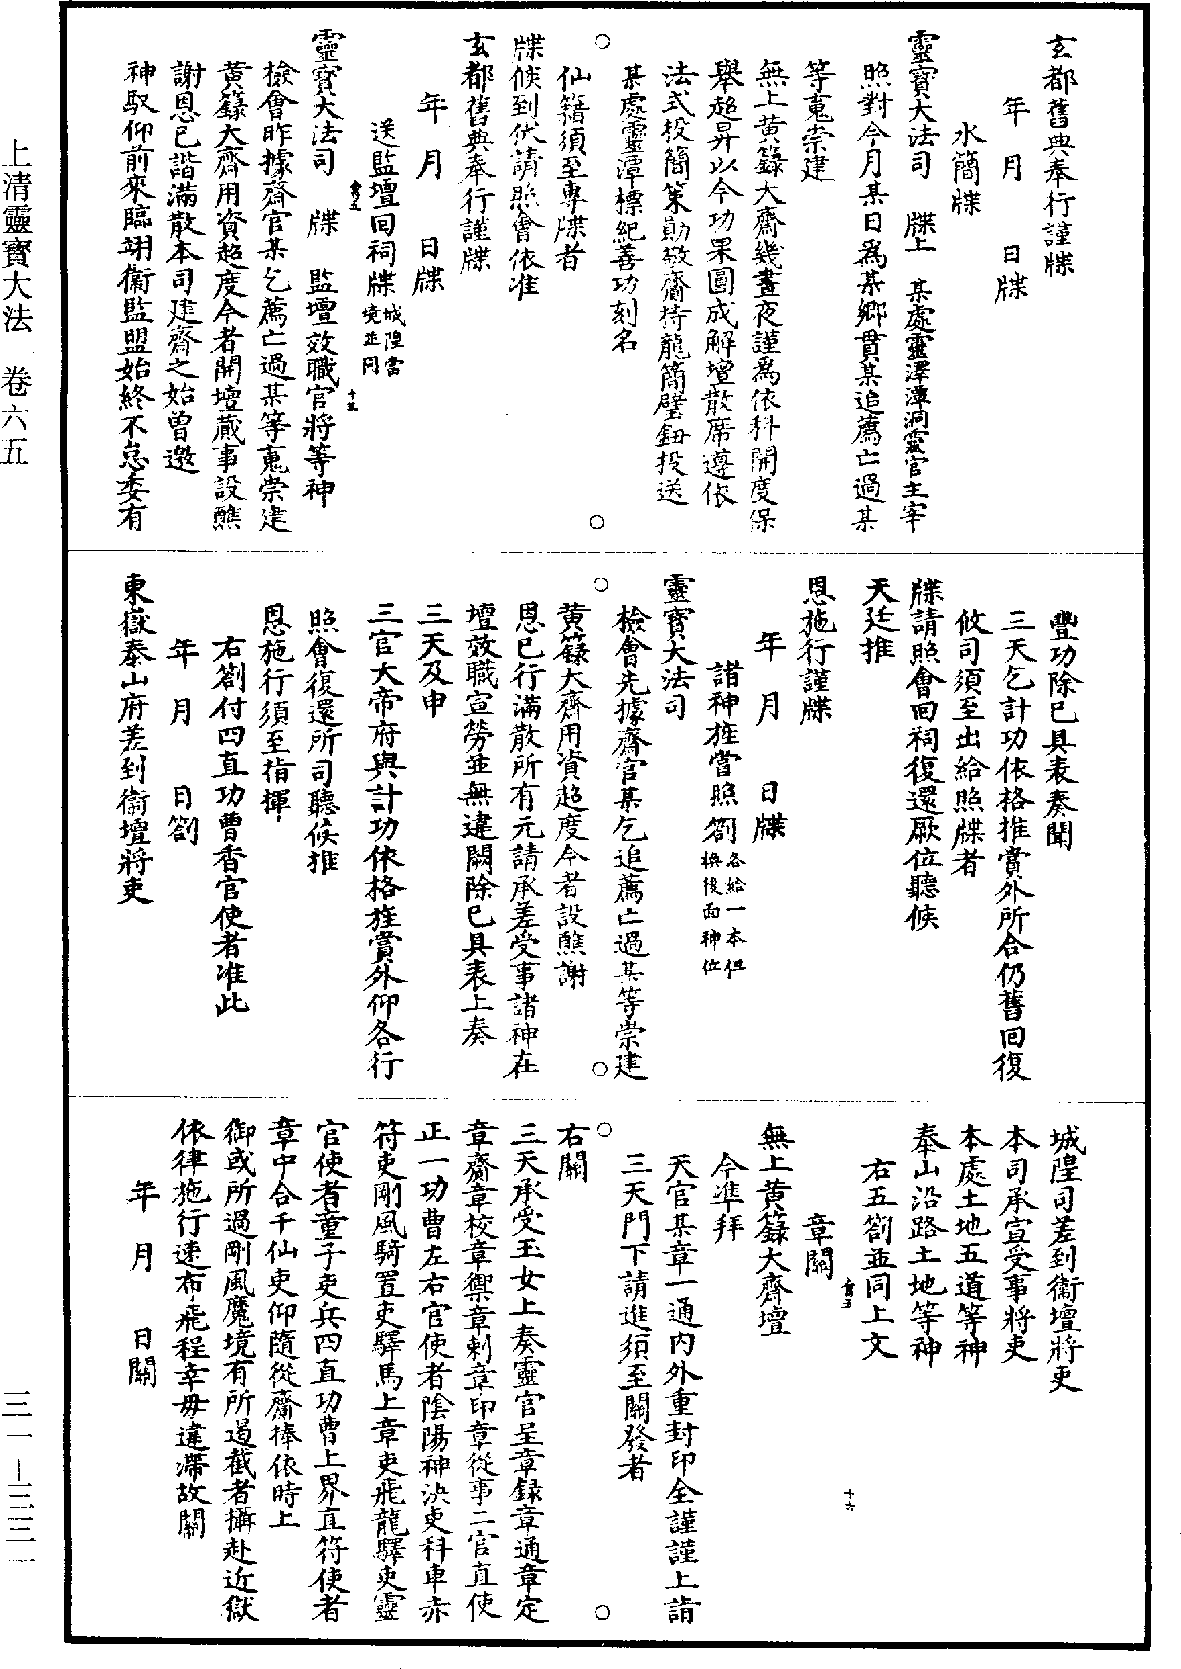 玄都舊典奉行謹牒
年　月　日牒
水簡牒
靈寶大法司　牒上　某處靈澤潭洞靈官主宰
照對今月某日爲某鄉貫某追薦亡過某
等䰟崇建
無上黃籙大齋幾晝夜謹為依科開度保
舉超昇以今功果圓成解壇散席遵依
法式投簡策勛敬齎持龍簡璧鈕投送
某處靈潭標紀善功刻名
仙籍須至專牒者
牒候到伏請照會依准
玄都舊典奉行謹牒
年　月　日牒
送監壇回祠牒城隍當境並同
靈寶大法司　牒　監壇效職官將等神
檢會昨據齋官某乞薦亡過某等䰟崇建
黃籙大齋用資超度今者開壇蕆事設醮
謝恩已諧滿散本司建齋之始曾邀
神馭仰前來臨翊衛監盟始終不怠委有
豐功除已具表奏聞
三天乞計功依格推賞外所合仍舊回復
攸司須至出給照牒者
牒請照會回祠復還厥位聽候
天廷推
恩施行謹牒
年　月　日牒
諸神旌當照劄各給一本但換後面神位
靈寶大法司
檢會先據齋官某乞追薦亡過某等崇建
黃籙大齋用資超度今者設醮謝
恩已行滿散所有元請承差受事諸神在
壇效職宣勞並無違闕除已具表上奏
三天及申
三官大帝府與計功依格旌賞外仰各行
照會復還所司聽候推
恩施行須至指揮
右劄付四直功曹香官使者准此
年　月　日劄
東嶽泰山府差到衛壇將吏
城隍司差到衛壇將吏
本司承宣受事將吏
本處土地五道等神
泰山沿路土地等神
右五劄並同上文
章關
無上黃籙大齋壇
今準拜
天官某章一通內外重封印全謹謹上詣
三天門下請進須至關發者
右關
三天承受玉女上奏靈官呈章錄章通章定
章齎章校章禦章刺章印章從事二官直使
正一功曹左右官使者陰陽神決吏科車赤
符吏剛風騎置吏驛馬上章吏飛龍驛吏靈
官使者童子吏兵四直功曹上界直符使者
章中合千仙吏仰隨從齎捧依時上
御或所過剛風魔境有所遏截者攝赴近獄
依律施行速布飛程幸毋違滯故關
年　月　日關
上清靈寶大法　卷六五
三一—三三一